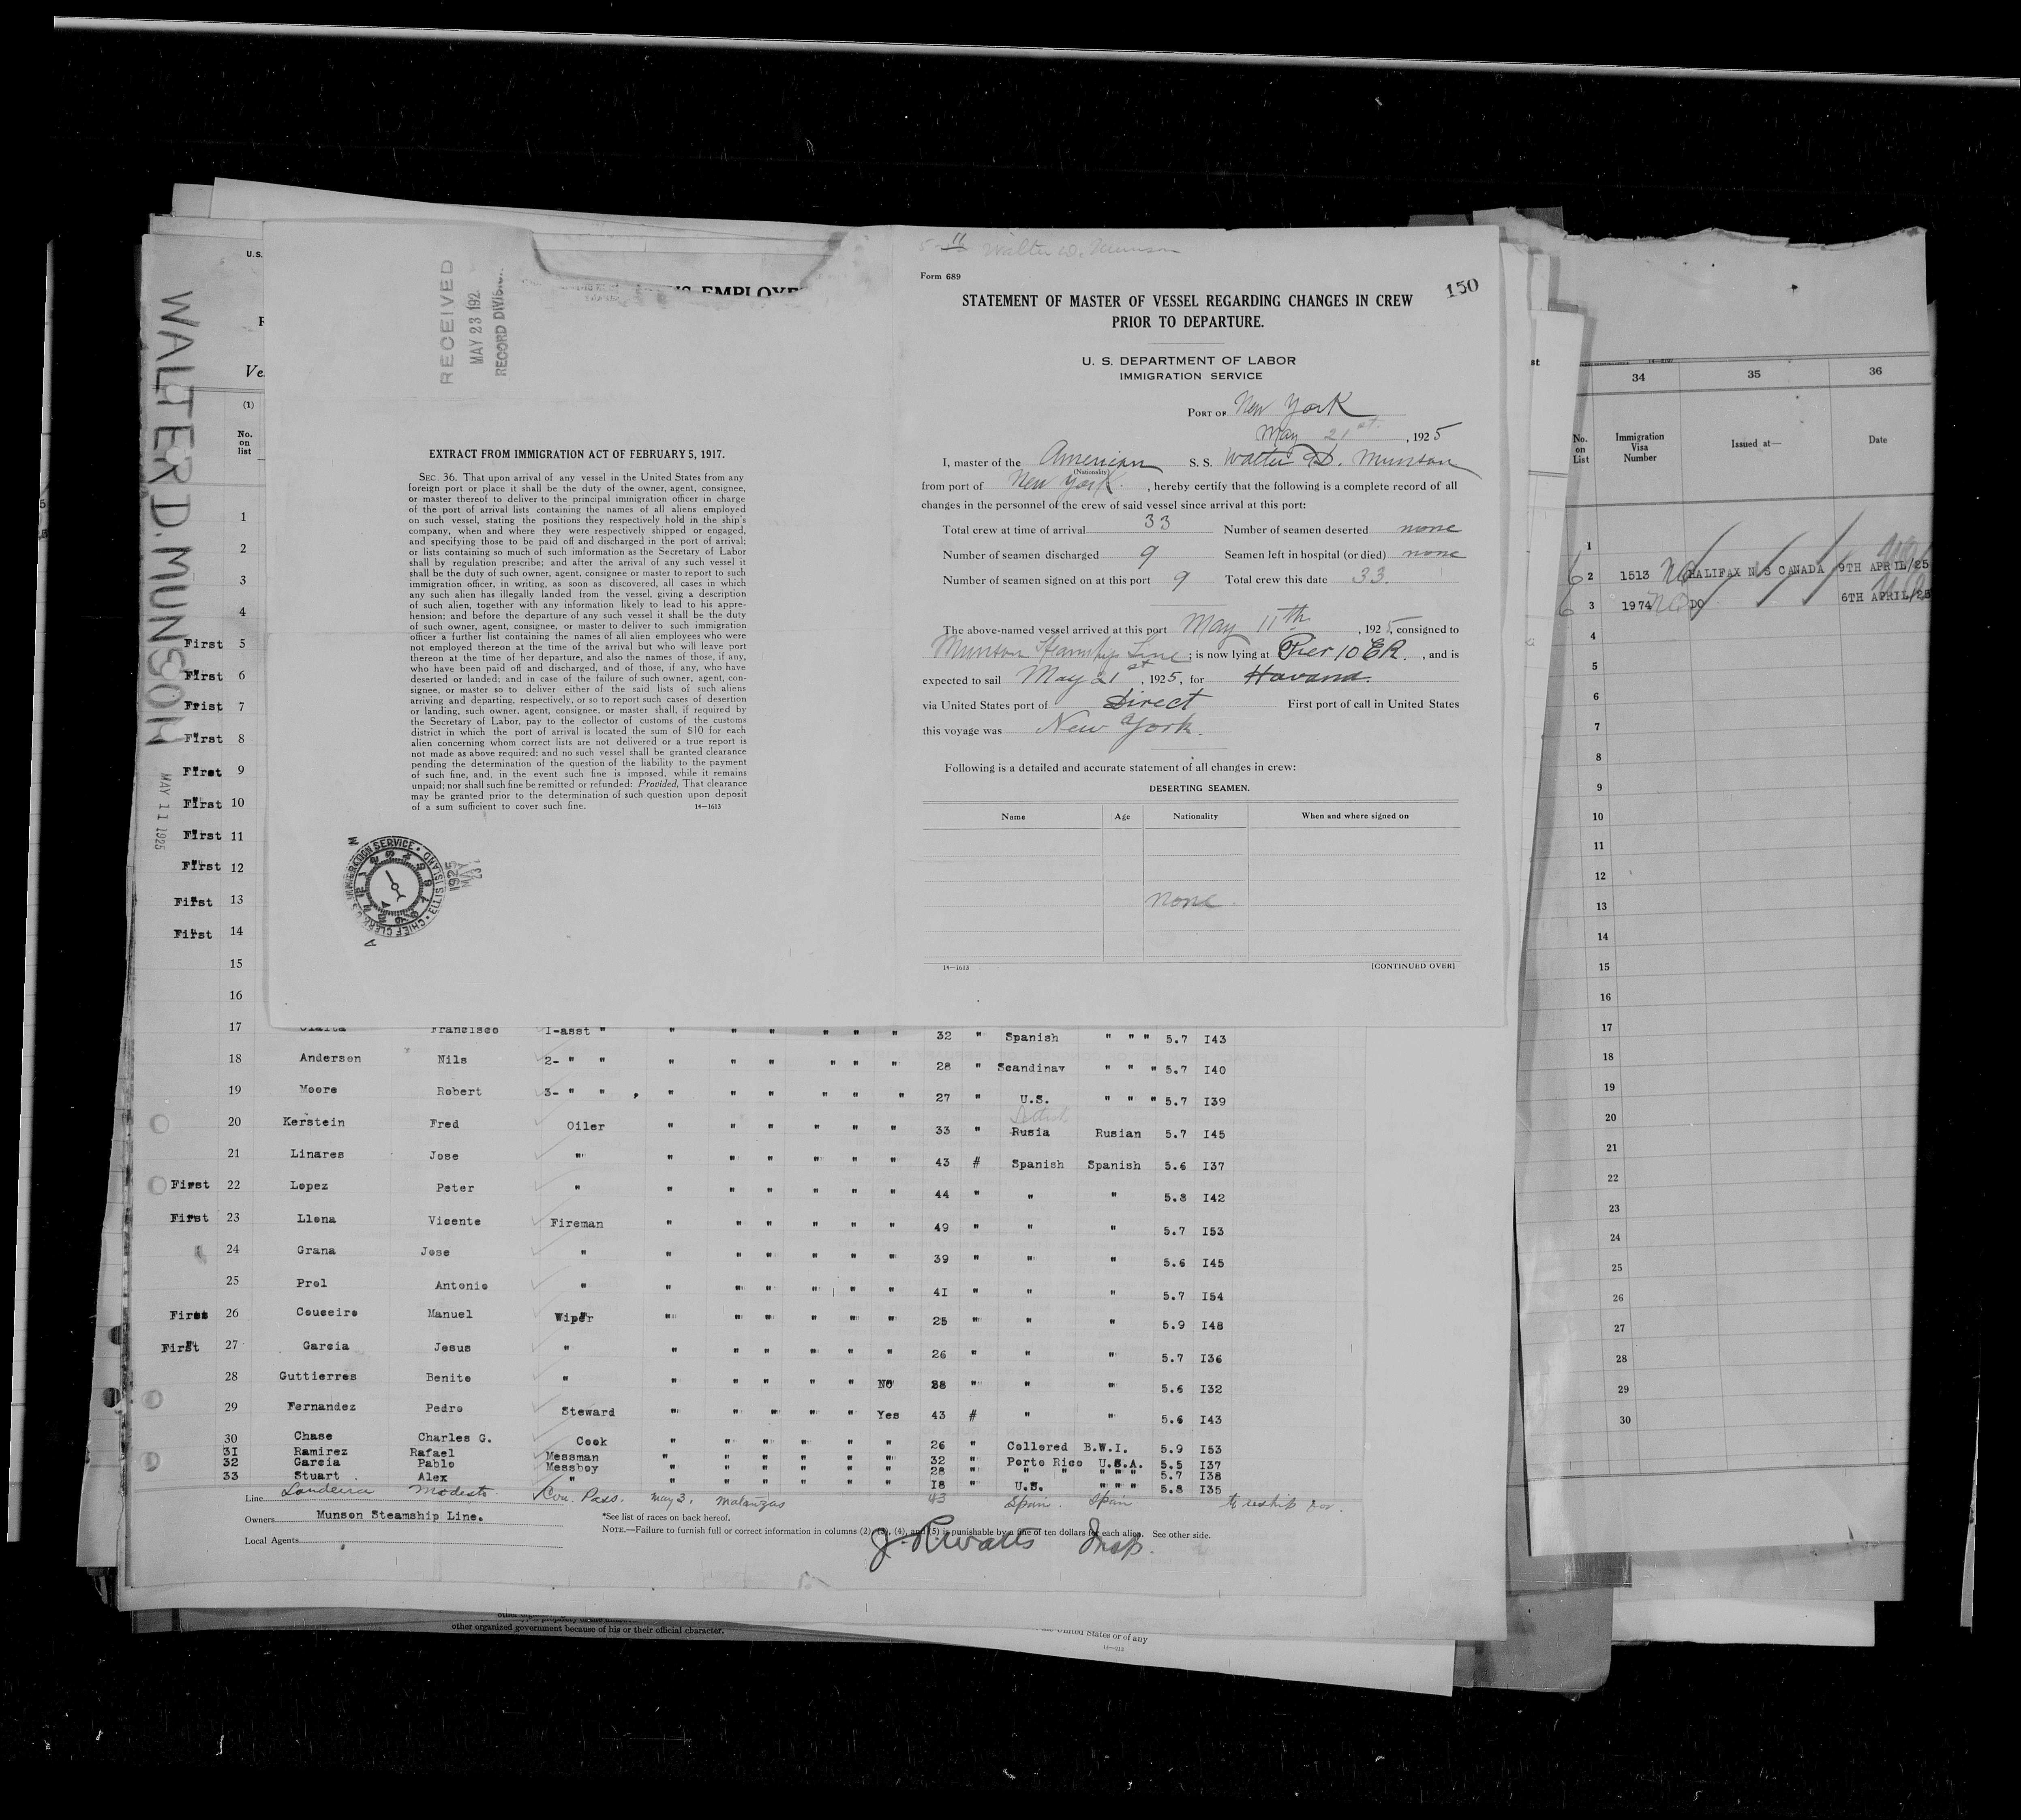 5-11 Walter D. Munson
Form 689
150
STATEMENT OF MASTER OF VESSEL REGARDING CHANGES IN CREW
PRIOR TO DEPARTURE.
U. S. DEPARTMENT OF LABOR
IMMIGRATION SERVICE
PORT OF New York
May 21st , 1925
I, master of the American S. S. Walter D. Munson
(Nationality)
from port of New York , hereby certify that the following is a complete record of all
changes in the personnel of the crew of said vessel since arrival at this port:
Total crew at time of arrival 33 Number of seamen deserted none
Number of seamen discharged 9 Seamen left in hospital (or died) none
Number of seamen signed on at this port 9 Total crew this date 33.
The above-named vessel arrived at this port May 11th , 1925, consigned to
Munson Steamship Line ; is now lying at Pier 10 ER. , and is
expected to sail May 21st , 1925, for Havana.
via United States port of Direct First port of call in United States
this voyage was New York.
Following is a detailed and accurate statement of all changes in crew:
DESERTING SEAMEN.
Name Age Nationality When and where signed on
none
14—1613 [CONTINUED OVER]
RECEIVED
MAY 23 192
RECORD DIVIS
EMPLOYE
EXTRACT FROM IMMIGRATION ACT OF FEBRUARY 5, 1917.
SEC. 36. That upon arrival of any vessel in the United States from any
foreign port or place it shall be the duty of the owner, agent, consignee,
or master thereof to deliver to the principal immigration officer in charge
of the port of arrival lists containing the names of all aliens employed
on such vessel, stating the positions they respectively hold in the ship's
company, when and where they were respectively shipped or engaged,
and specifying those to be paid off and discharged in the port of arrival;
or lists containing so much of such imformation as the Secretary of Labor
shall by regulation prescribe; and after the arrival of any such vessel it
shall be the duty of such owner, agent, consignee or master to report to such
immigration officer, in writing, as soon as discovered, all cases in which
any such alien has illegally landed from the vessel, giving a description
of such alien, together with any information likely to lead to his appre-
hension; and before the departure of any such vessel it shall be the duty
of such owner, agent, consignee, or master to deliver to such immigration
officer a further list containing the names of all alien employees who were
not employed thereon at the time of the arrival but who will leave port
thereon at the time of her departure, and also the names of those, if any,
who have been paid off and discharged, and of those, if any, who have
deserted or landed; and in case of the failure of such owner, agent, con-
signee, or master so to deliver either of the said lists of such aliens
arriving and departing, respectively, or so to report such cases of desertion
or landing, such owner, agent, consignee, or master shall, if required by
the Secretary of Labor, pay to the collector of customs of the customs
district in which the port of arrival is located the sum of $10 for each
alien concerning whom correct lists are not delivered or a true report is
not made as above required; and no such vessel shall be granted clearance
pending the determination of the question of the liability to the payment
of such fine, and, in the event such fine is imposed, while it remains
unpaid; nor shall such fine be remitted or refunded: Provided, That clearance
may be granted prior to the determination of such question upon deposit
of a sum sufficient to cover such fine. 14—1613
IMMIGRATION SERVICE • ELLIS ISLAND • CHIEF CLERK
MAY 23 1925
WALTER D. MUNSON
MAY 11 1925
U.S.
Ve
(1)
No.
on
list
1
2
3
4
First 5
First 6
Frist 7
First 8
First 9
First 10
First 11
First 12
First 13
First 14
15
16
17 Francisco 1-asst " " " " " " " 32 " Spanish " " " 5.7 I43
18 Anderson Nils 2- " " " " " " " " 28 " Scandinav " " " 5.7 I40
19 Moore Robert 3- " " , " " " " " " 27 " U.S. " " " 5.7 I39
20 Kerstein Fred Oiler " " " " " " 33 " Rusia Rusian 5.7 I45
21 Linares Jose " " " " " " " 43 # Spanish Spanish 5.6 I37
First 22 Lopez Peter " " " " " " " 44 " " " 5.8 I42
First 23 Llona Vicente Fireman " " " " " " 49 " " " 5.7 I53
24 Grana Jose " " " " " " " 39 " " " 5.6 I45
25 Prol Antonio " " " " " " " 4I " " " 5.7 I54
First 26 Couceiro Manuel Wiper " " " " " " 25 " " " 5.9 I48
First 27 Garcia Jesus " " " " " " " 26 " " " 5.7 I36
28 Guttierres Benito " " " " " " No 28 " " " 5.6 I32
29 Fernandez Pedro Steward " " " " " Yes 43 # " " 5.6 I43
30 Chase Charles G. Cook " " " " " " 26 " Collored B.W.I. 5.9 I53
3I Ramirez Rafael Messman " " " " " " 32 " Porto Rico U.S.A. 5.5 I37
32 Garcia Pablo Messboy " " " " " " 28 " " " " " " 5.7 I38
33 Stuart Alex " " " " " " " I8 " U.S. " " " 5.8 I35
Landeira Modesto Con. Pass. May 3, Matanzas 43 Spain. Spain to reship for.
Line
Owners Munson Steamship Line.
Local Agents
*See list of races on back hereof.
NOTE.—Failure to furnish full or correct information in columns (2), (3), (4), and (5) is punishable by a fine of ten dollars for each alien. See other side.
J. R. Watts Insp.
other organized government because of his or their official character.
United States or of any
34 35 36
No.
on
List
Immigration
Visa
Number
Issued at—
Date
1
2 1513 HALIFAX N S CANADA 9TH APRIL/25
3 1974 DO 6TH APRIL/25
4
5
6
7
8
9
10
11
12
13
14
15
16
17
18
19
20
21
22
23
24
25
26
27
28
29
30